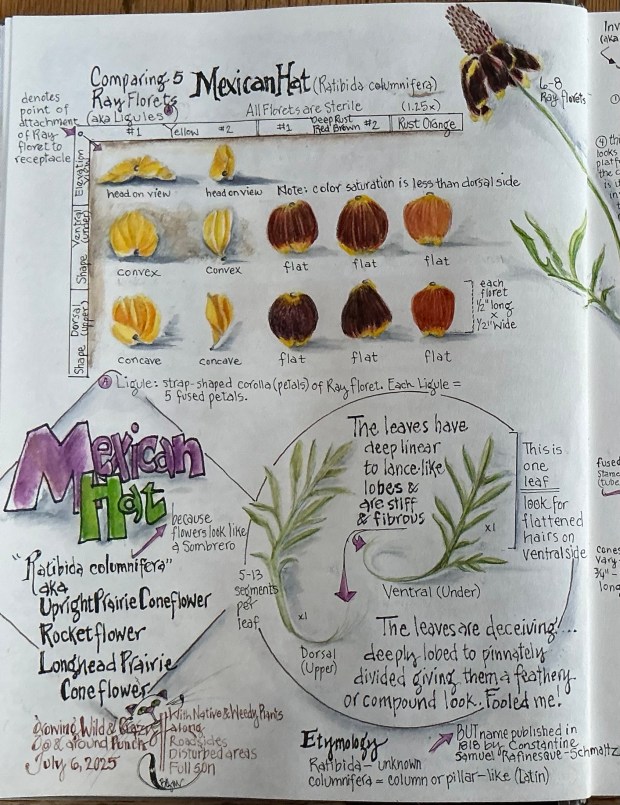 Comparing 5
Ray Florets
(aka Ligules) A
Mexican Hat (Ratibida columnifera)
All Florets are Sterile
(1.25x)
denotes
point of
attachment
of Ray
floret to
receptacle
#1 Yellow #2
#1 Deep Rust Red Brown #2
Rust Orange
6-8
Ray florets
Elevation
View
head on view
head on view
Note: color saturation is less than dorsal side
Shape Ventral
(under)
convex
convex
flat
flat
flat
Shape Dorsal
(upper)
concave
concave
flat
flat
flat
each
floret
1/2" long
x
1/2" wide
A Ligule: strap-shaped corolla (petals) of Ray floret. Each Ligule =
5 fused petals.
Mexican
Hat
because
flowers look like
a Sombrero
"Ratibida columnifera"
aka
Upright Prairie Coneflower
Rocketflower
Longhead Prairie
Coneflower
The leaves have
deep linear
to lance-like
lobes &
are stiff
& fibrous
This is
one
leaf
look for
flattened
hairs on
ventral side
x1
Ventral (Under)
5-13
segments
per
leaf
x1
Dorsal
(Upper)
The leaves are deceiving...
deeply lobed to pinnately
divided giving them a feathery
or compound look. Fooled me!
Growing Wild & Crazy
July 6, 2025
With Native & Weedy Plants
Along
Roadsides
Disturbed areas
Full sun
Etymology
Ratibida - unknown
columnifera = column or pillar-like (Latin)
BUT name published in
1818 by Constantine
Samuel Rafinesque-Schmaltz
Inv
(aka
①
④ thi
looks
platf
the c
is u
in
fused
stame
(tube
cones
vary
3/4" -
long